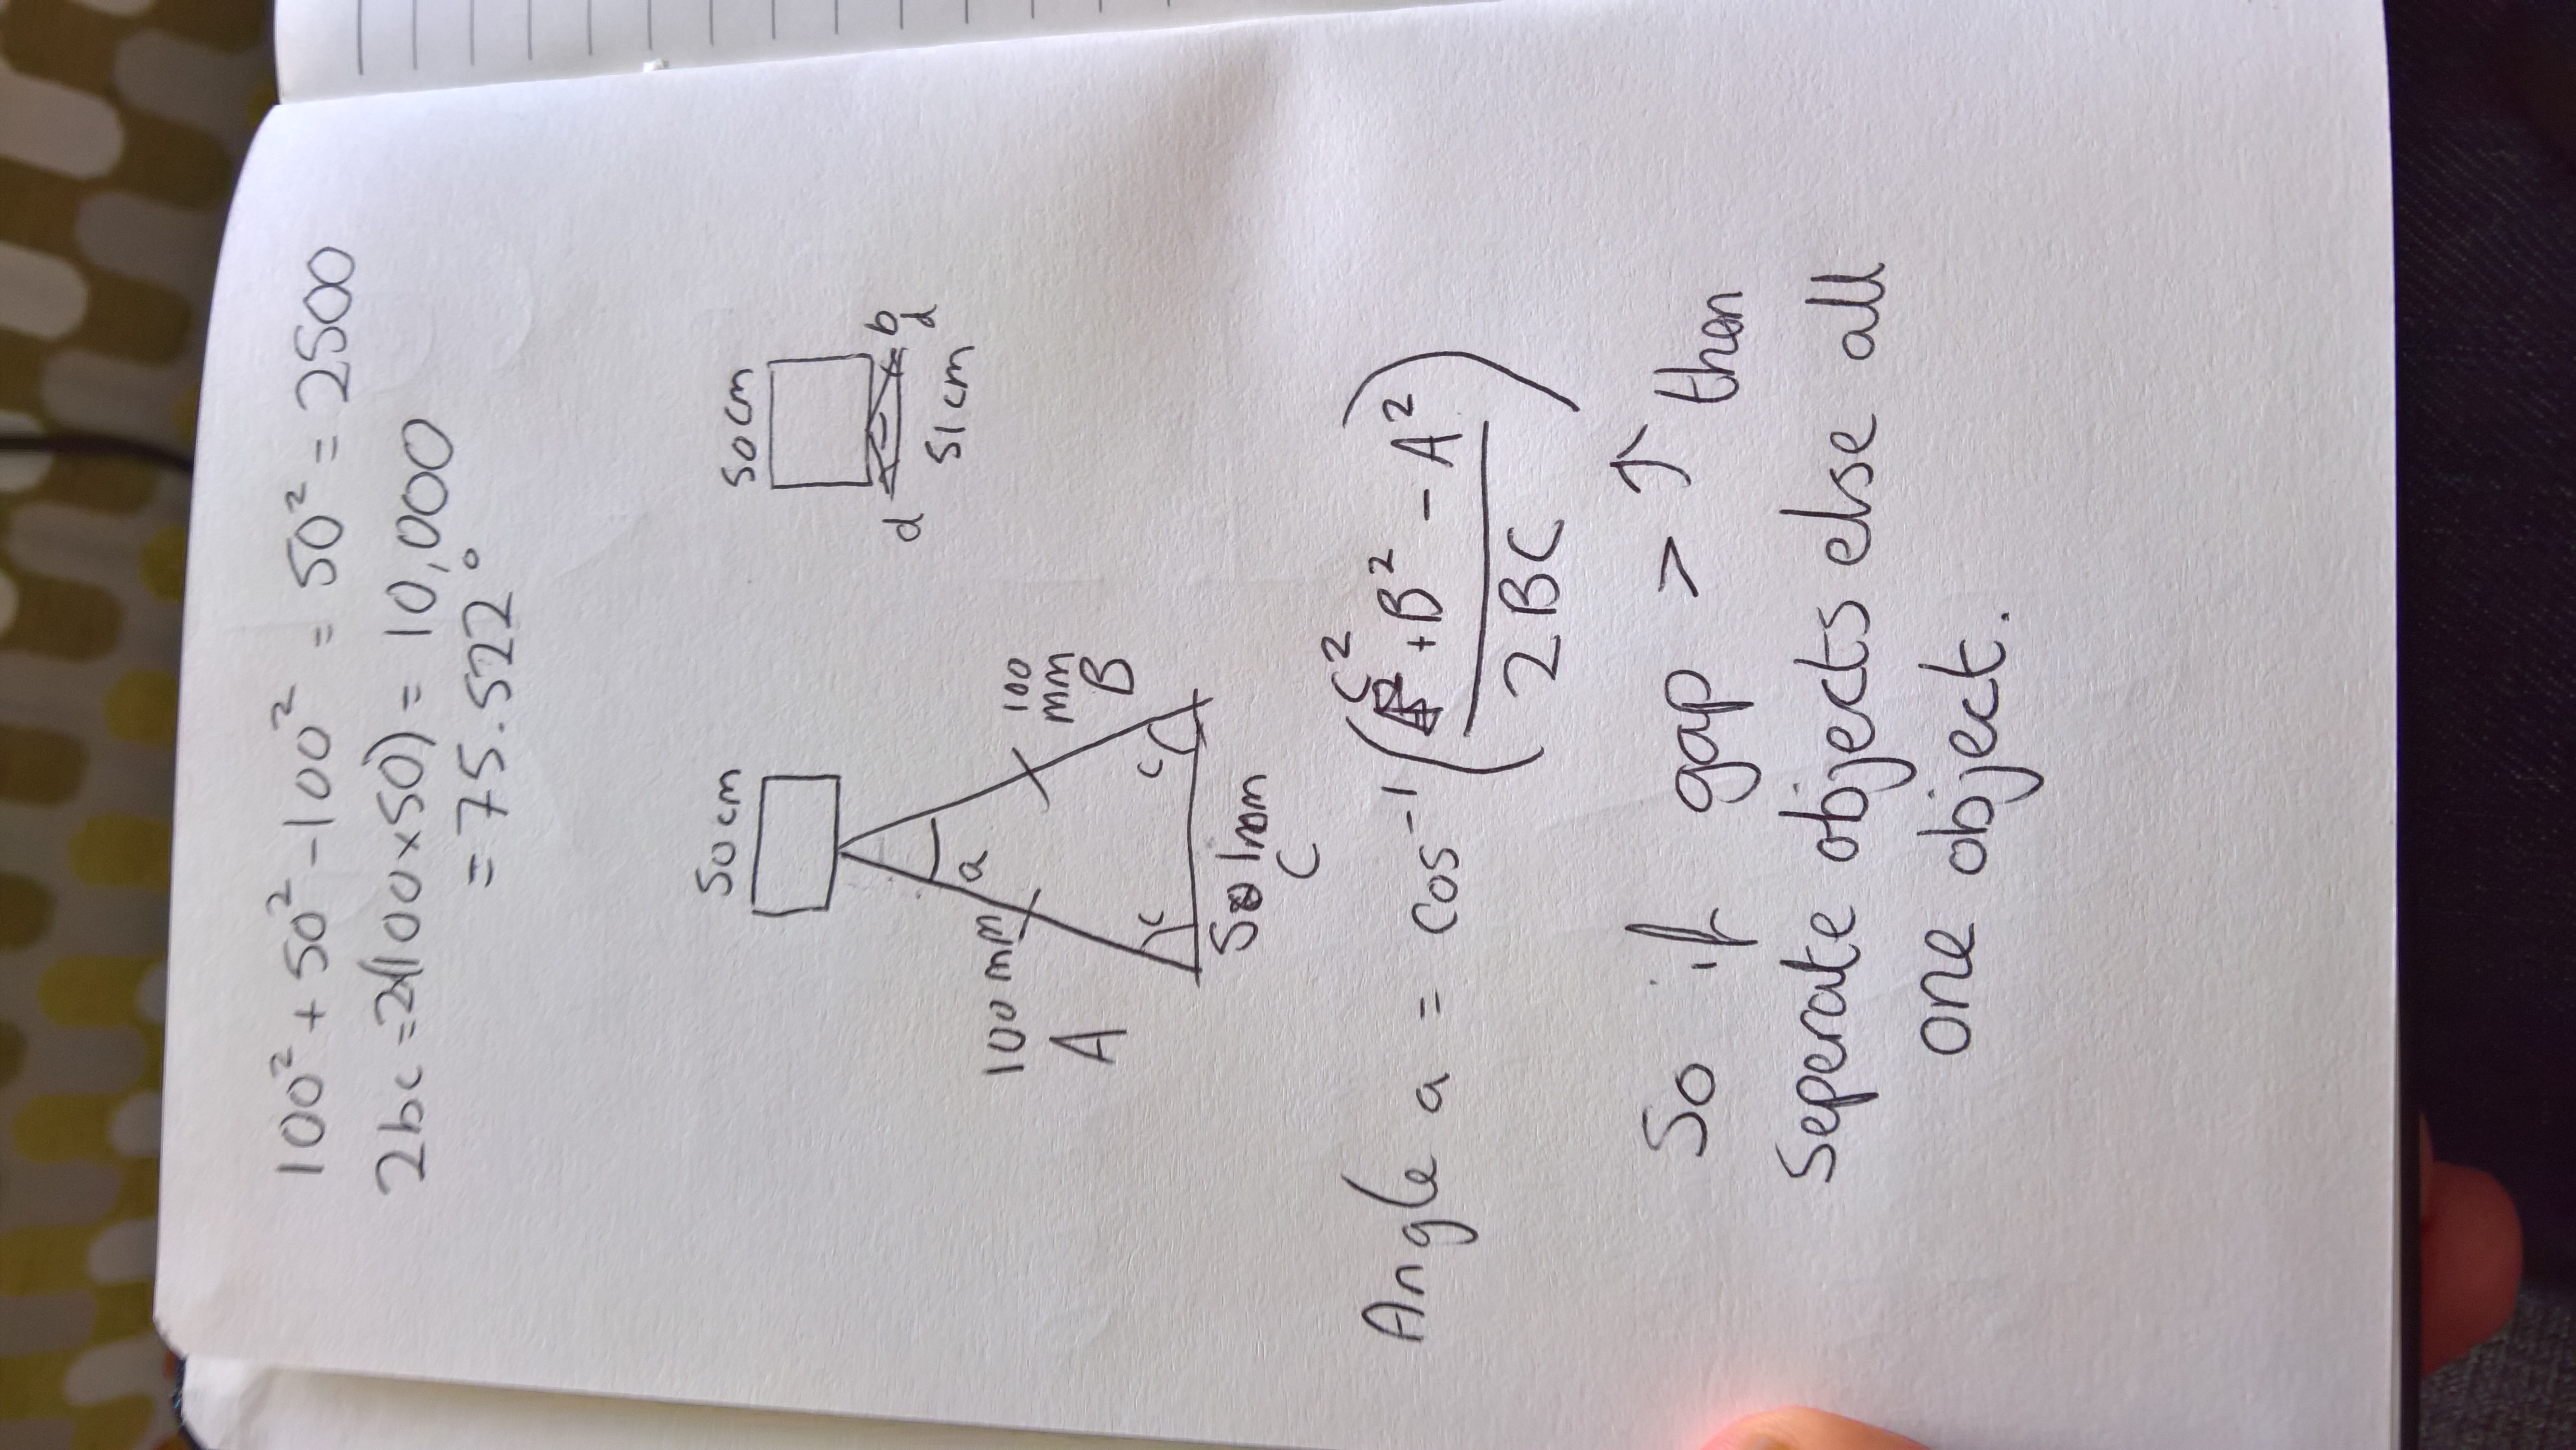 100² + 50² - 100² = 50² = 2500
2bc = 2(100×50) = 10,000
= 75.522°
50cm
50cm
d
b
d
51cm
a
100mm
A
100
mm
B
c
c
501mm
C
Angle a = cos⁻¹ (C² + B² - A² / 2BC)
So if gap > ↑ then
Seperate objects else all
one object.